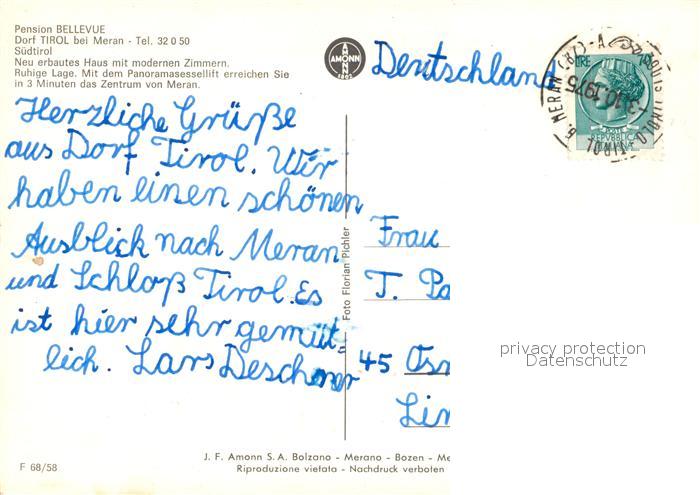 Pension BELLEVUE
Dorf TIROL bei Meran - Tel. 32 0 50
Südtirol
Neu erbautes Haus mit modernen Zimmern.
Ruhige Lage. Mit dem Panoramasessellift erreichen Sie
in 3 Minuten das Zentrum von Meran.
AMONN
AMONN
1802
Deutschland
LIRE 70
REPVBBLICA
ITALIANA
10.1975
Herzliche Grüße
aus Dorf Tirol. Wir
haben einen schönen
Ausblick nach Meran
und Schloß Tirol. Es
ist hier sehr gemüt=
lich. Lars Deschner
Foto Florian Pichler
Frau
T. Pa
45 Osn
Lin
privacy protection
Datenschutz
J. F. Amonn S.A. Bolzano - Merano - Bozen - Me
Riproduzione vietata - Nachdruck verboten
F 68/58